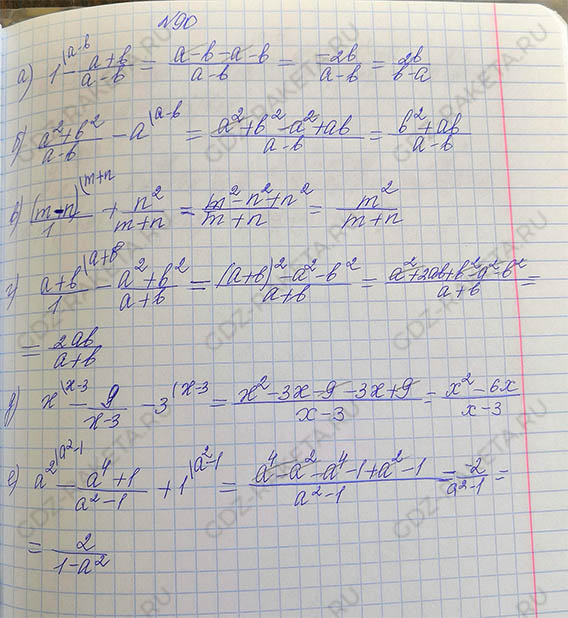 №90
а) 1^{\a-b} - \frac{a+b}{a-b} = \frac{a-b-a-b}{a-b} = \frac{-2b}{a-b} = \frac{2b}{b-a}
б) \frac{a^2+b^2}{a-b} - a^{\a-b} = \frac{a^2+b^2-a^2+ab}{a-b} = \frac{b^2+ab}{a-b}
в) \frac{(m-n)^{\m+n}}{1} + \frac{n^2}{m+n} = \frac{m^2-n^2+n^2}{m+n} = \frac{m^2}{m+n}
г) \frac{a+b^{\a+b}}{1} - \frac{a^2+b^2}{a+b} = \frac{(a+b)^2-a^2-b^2}{a+b} = \frac{a^2+2ab+b^2-a^2-b^2}{a+b} =
= \frac{2ab}{a+b}
д) x^{\x-3} - \frac{9}{x-3} - 3^{\x-3} = \frac{x^2-3x-9-3x+9}{x-3} = \frac{x^2-6x}{x-3}
е) a^2^{\a^2-1} - \frac{a^4+1}{a^2-1} + 1^{\a^2-1} = \frac{a^4-a^2-a^4-1+a^2-1}{a^2-1} = \frac{-2}{a^2-1} =
= \frac{2}{1-a^2}
GDZ-RAKETA.RU